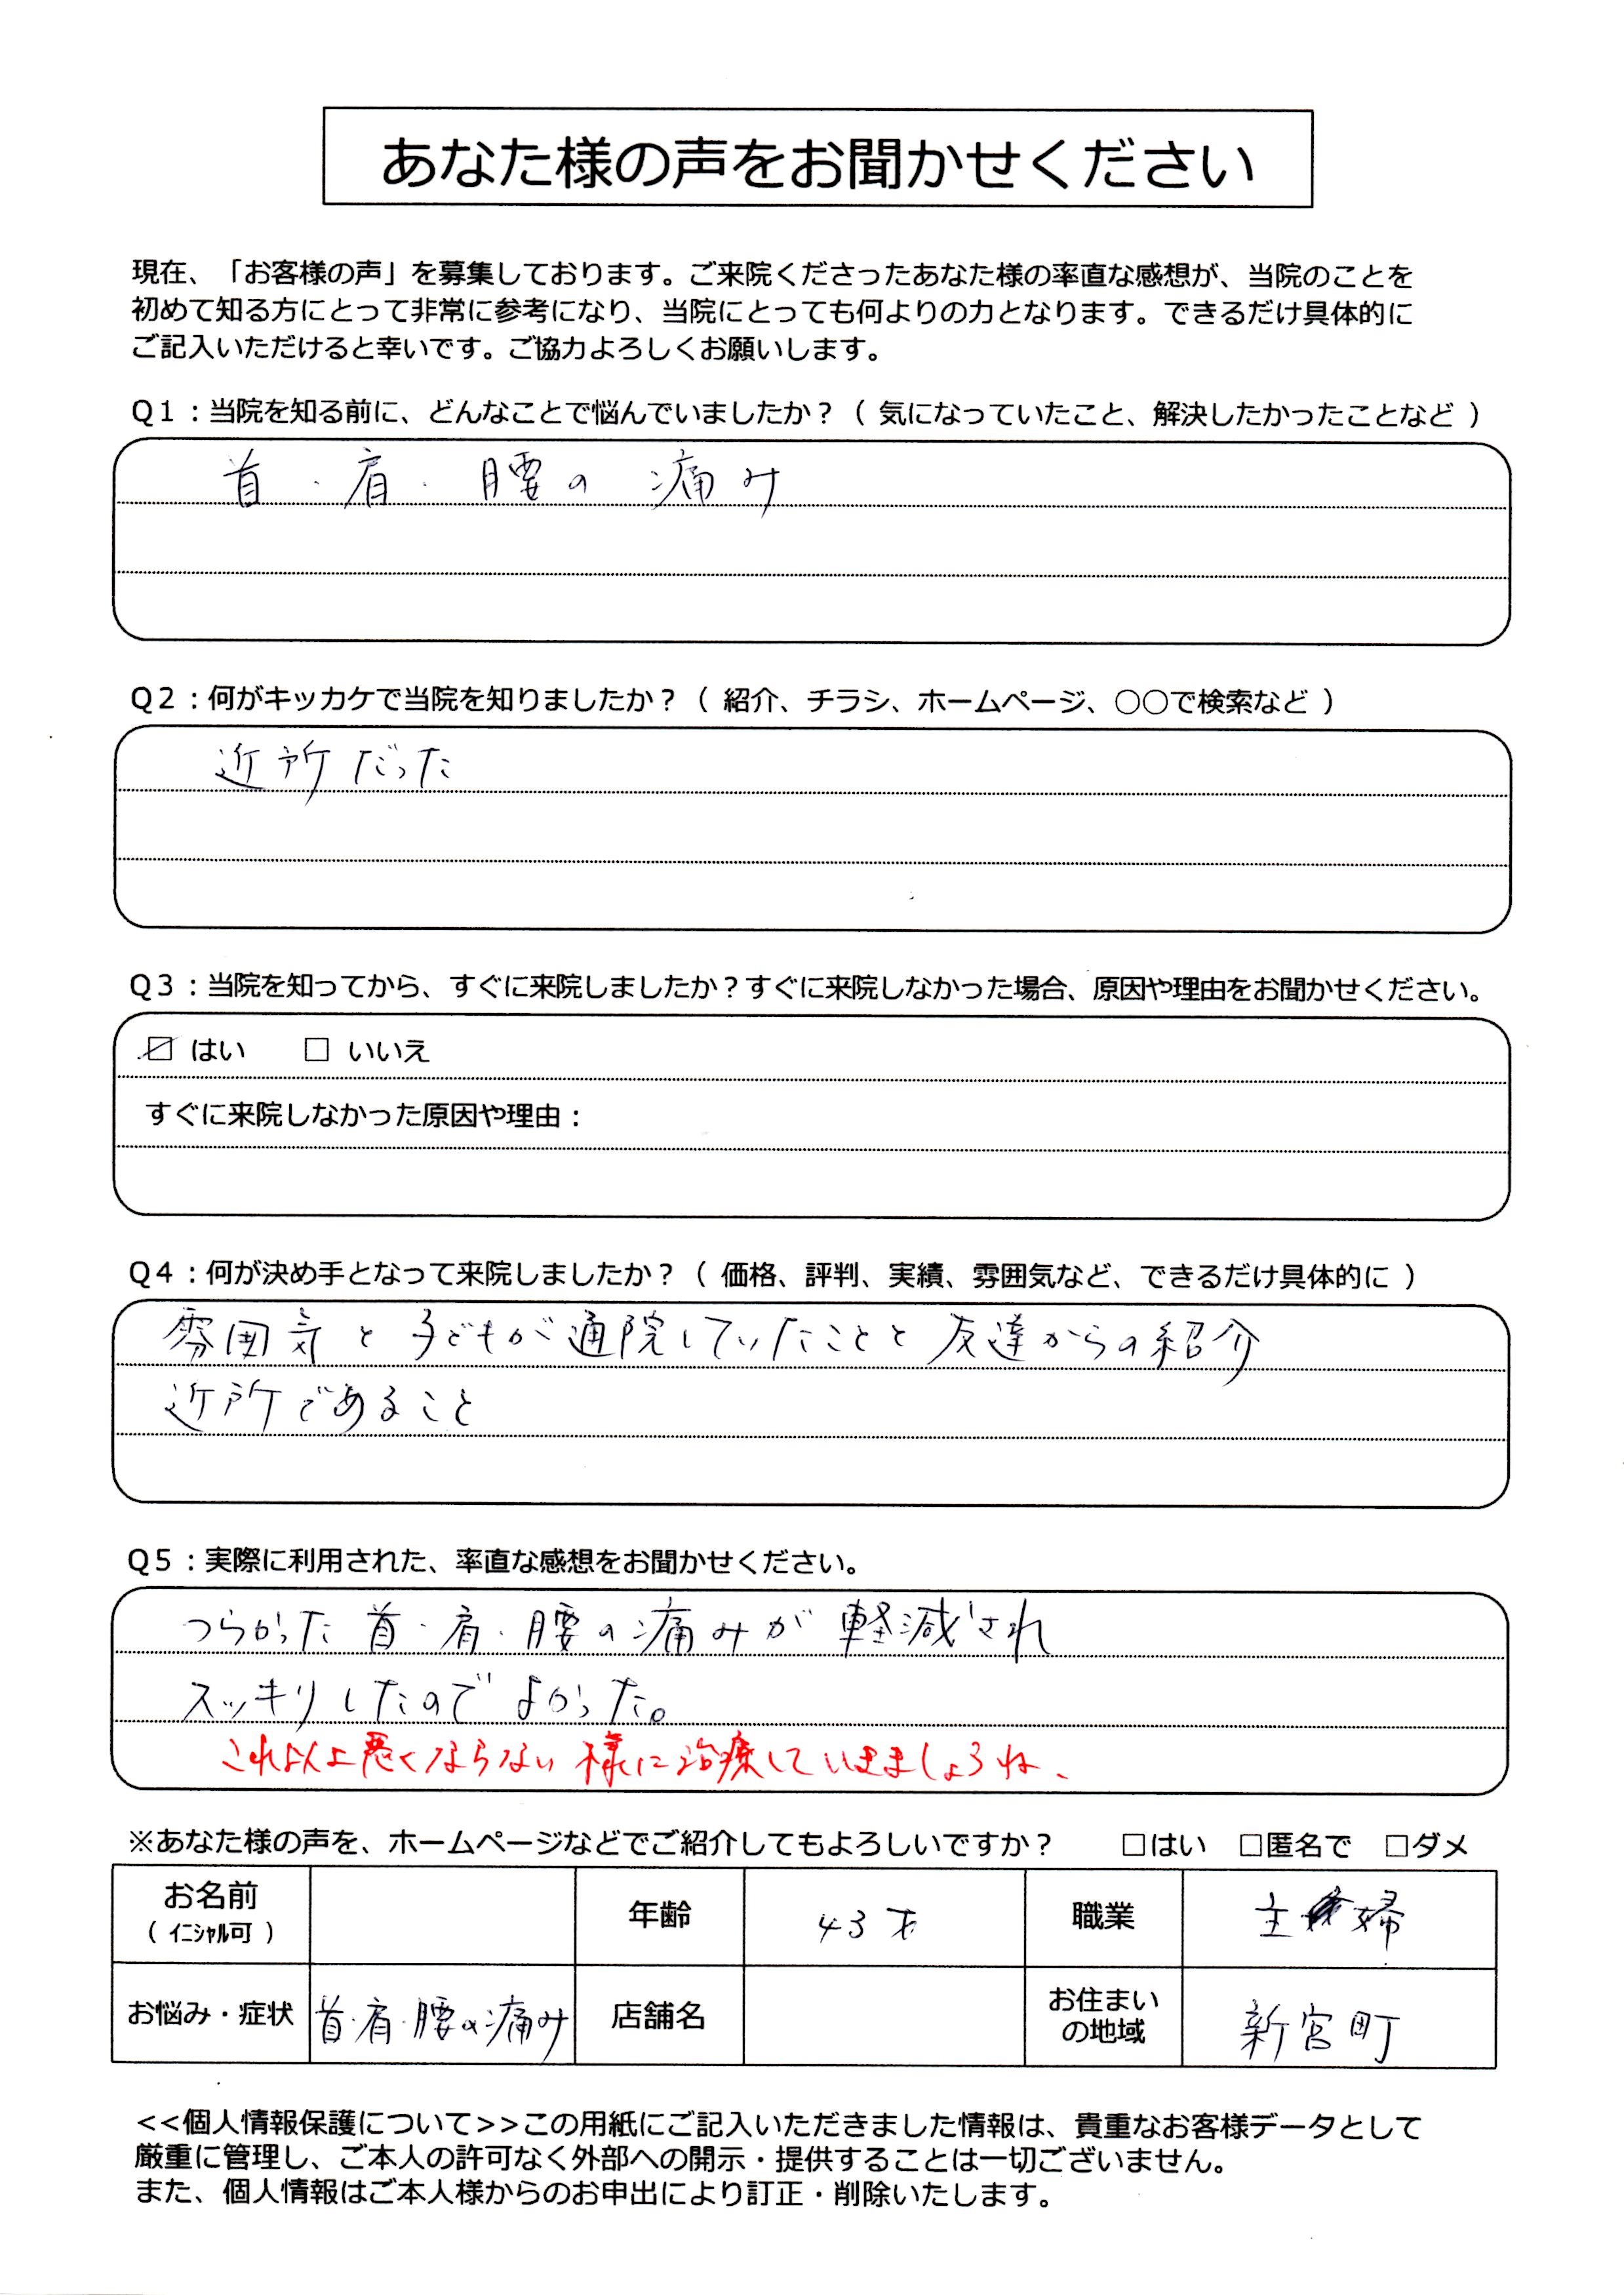 あなた様の声をお聞かせください
現在、「お客様の声」を募集しております。ご来院くださったあなた様の率直な感想が、当院のことを
初めて知る方にとって非常に参考になり、当院にとっても何よりの力となります。できるだけ具体的に
ご記入いただけると幸いです。ご協力よろしくお願いします。
Q1：当院を知る前に、どんなことで悩んでいましたか？（ 気になっていたこと、解決したかったことなど ）
首・肩・腰の痛み
Q2：何がキッカケで当院を知りましたか？（ 紹介、チラシ、ホームページ、○○で検索など ）
近所だった
Q3：当院を知ってから、すぐに来院しましたか？すぐに来院しなかった場合、原因や理由をお聞かせください。
☑ はい □ いいえ
すぐに来院しなかった原因や理由：
Q4：何が決め手となって来院しましたか？（ 価格、評判、実績、雰囲気など、できるだけ具体的に ）
雰囲気と子どもが通院していたことと友達からの紹介
近所であること
Q5：実際に利用された、率直な感想をお聞かせください。
つらかった首・肩・腰の痛みが軽減され
スッキリしたのでよかった。
これ以上悪くならない様に治療していきましょうね、
※あなた様の声を、ホームページなどでご紹介してもよろしいですか？ □はい □匿名で □ダメ
お名前 年齢 43才 職業 主婦
（ ｲﾆｼｬﾙ可 ）
お悩み・症状 首・肩・腰の痛み 店舗名 お住まい 新宮町
の地域
<<個人情報保護について>>この用紙にご記入いただきました情報は、貴重なお客様データとして
厳重に管理し、ご本人の許可なく外部への開示・提供することは一切ございません。
また、個人情報はご本人様からのお申出により訂正・削除いたします。